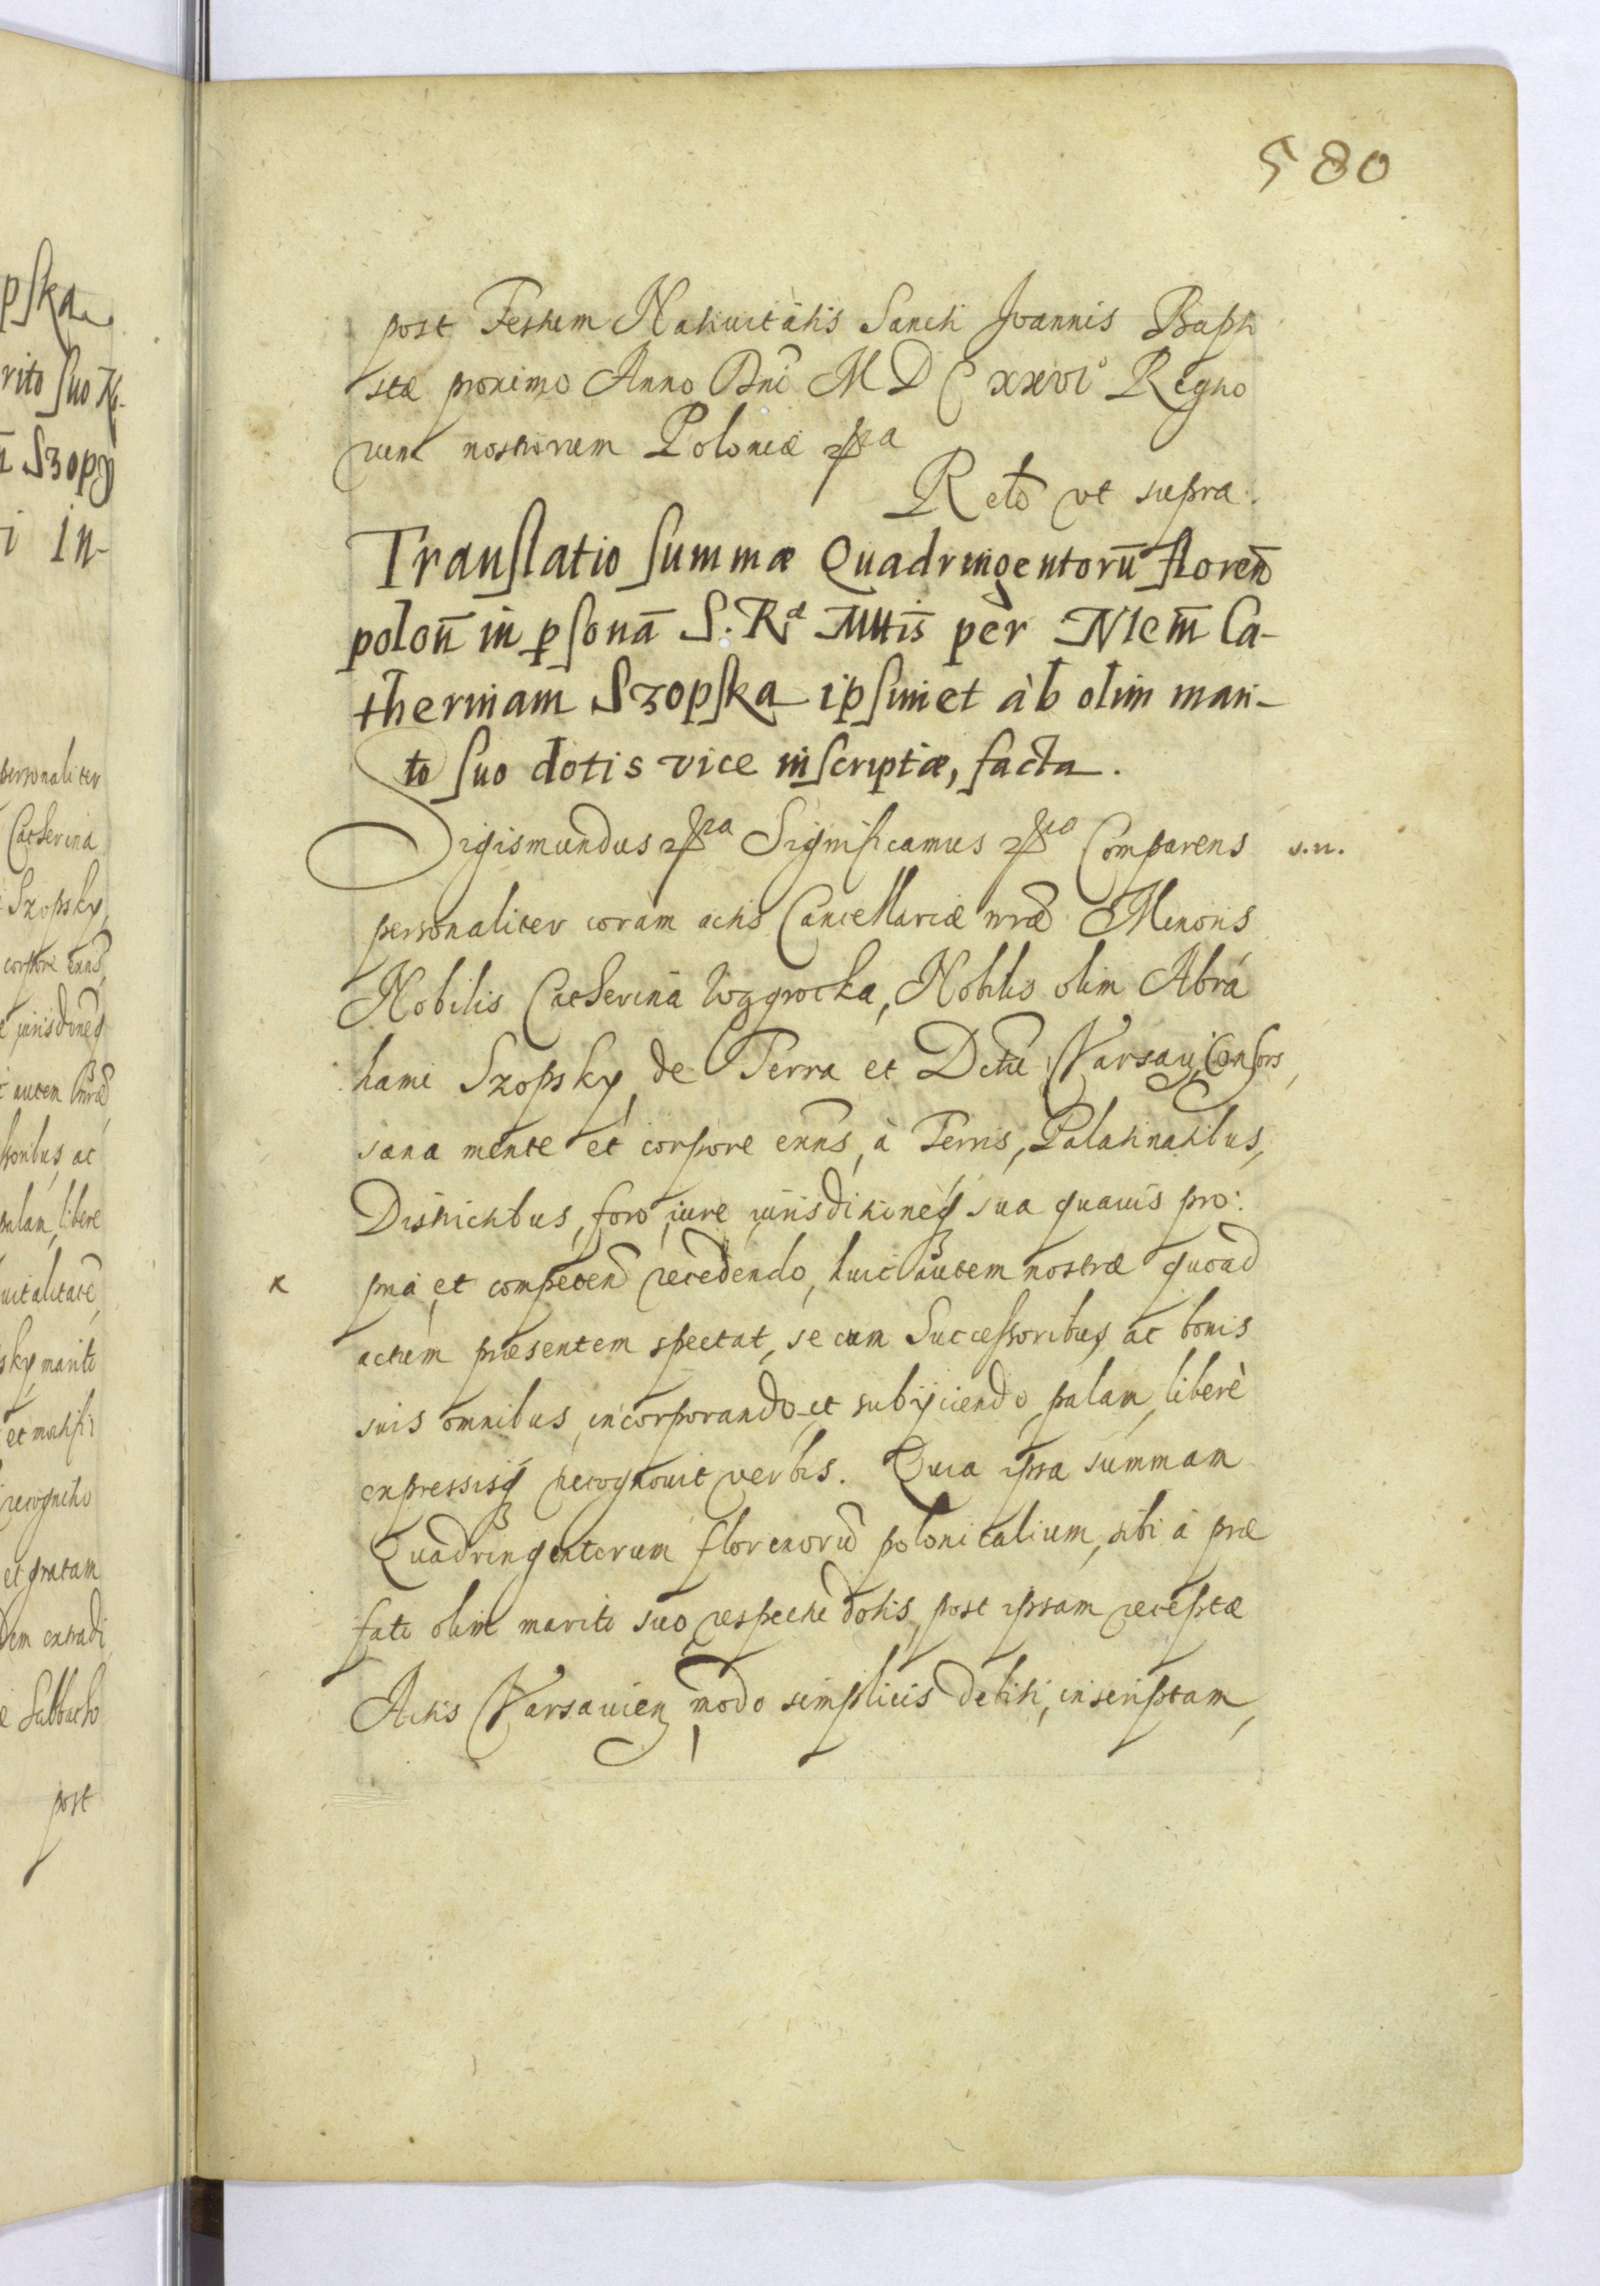 580
post Festum Natiuitatis Sancti Joannis Bapti
stæ proximo Anno Dni M D C xxvi° Regno
rum nostrorum Poloniæ etc
Reło vt supra.
Translatio summæ Quadringentorū floreñ
poloñ in psonā S. Rᵈ Mttis per Nlem̄ Ca-
therinam Szopska ipsimet ab olim mari-
to suo dotis vice inscriptæ, facta.
Sigismundus etc Significamus etc Comparens s.n.
personaliter coram actis Cancellariæ nræ Minoris
Nobilis Catherina Węgrocka, Nobilis olim Abra
hami Szopsky de Terra et Dctu Varsauien Consors,
sana mente et corpore enns, à Terris, Palatinatibus,
Districtibus, foro iure iurisditioneq sua quauis pro:
pria et competen recedendo, huic autem nostræ quoad
actum præsentem spectat, se cum Successoribus ac bonis
suis omnibus incorporando et subijciendo palam liberè
expressisq recognouit verbis. Quia ipsa summam
Quadringentorum florenorū polonicalium, sibi à præ
fato olim marito suo respectu dotis, post ipsam receptæ
Actis Varsauien modo simplicis debiti, inscriptam,
pska
rito suo N
Szopy
i in-
personaliter
Catherina
Szopsky
corpore enns
iurisdoneq
autem nræ
soribus, ac
palam, libere
uitalitatē
sky, mariti
recognitio
et gratam
Sabbatho
post